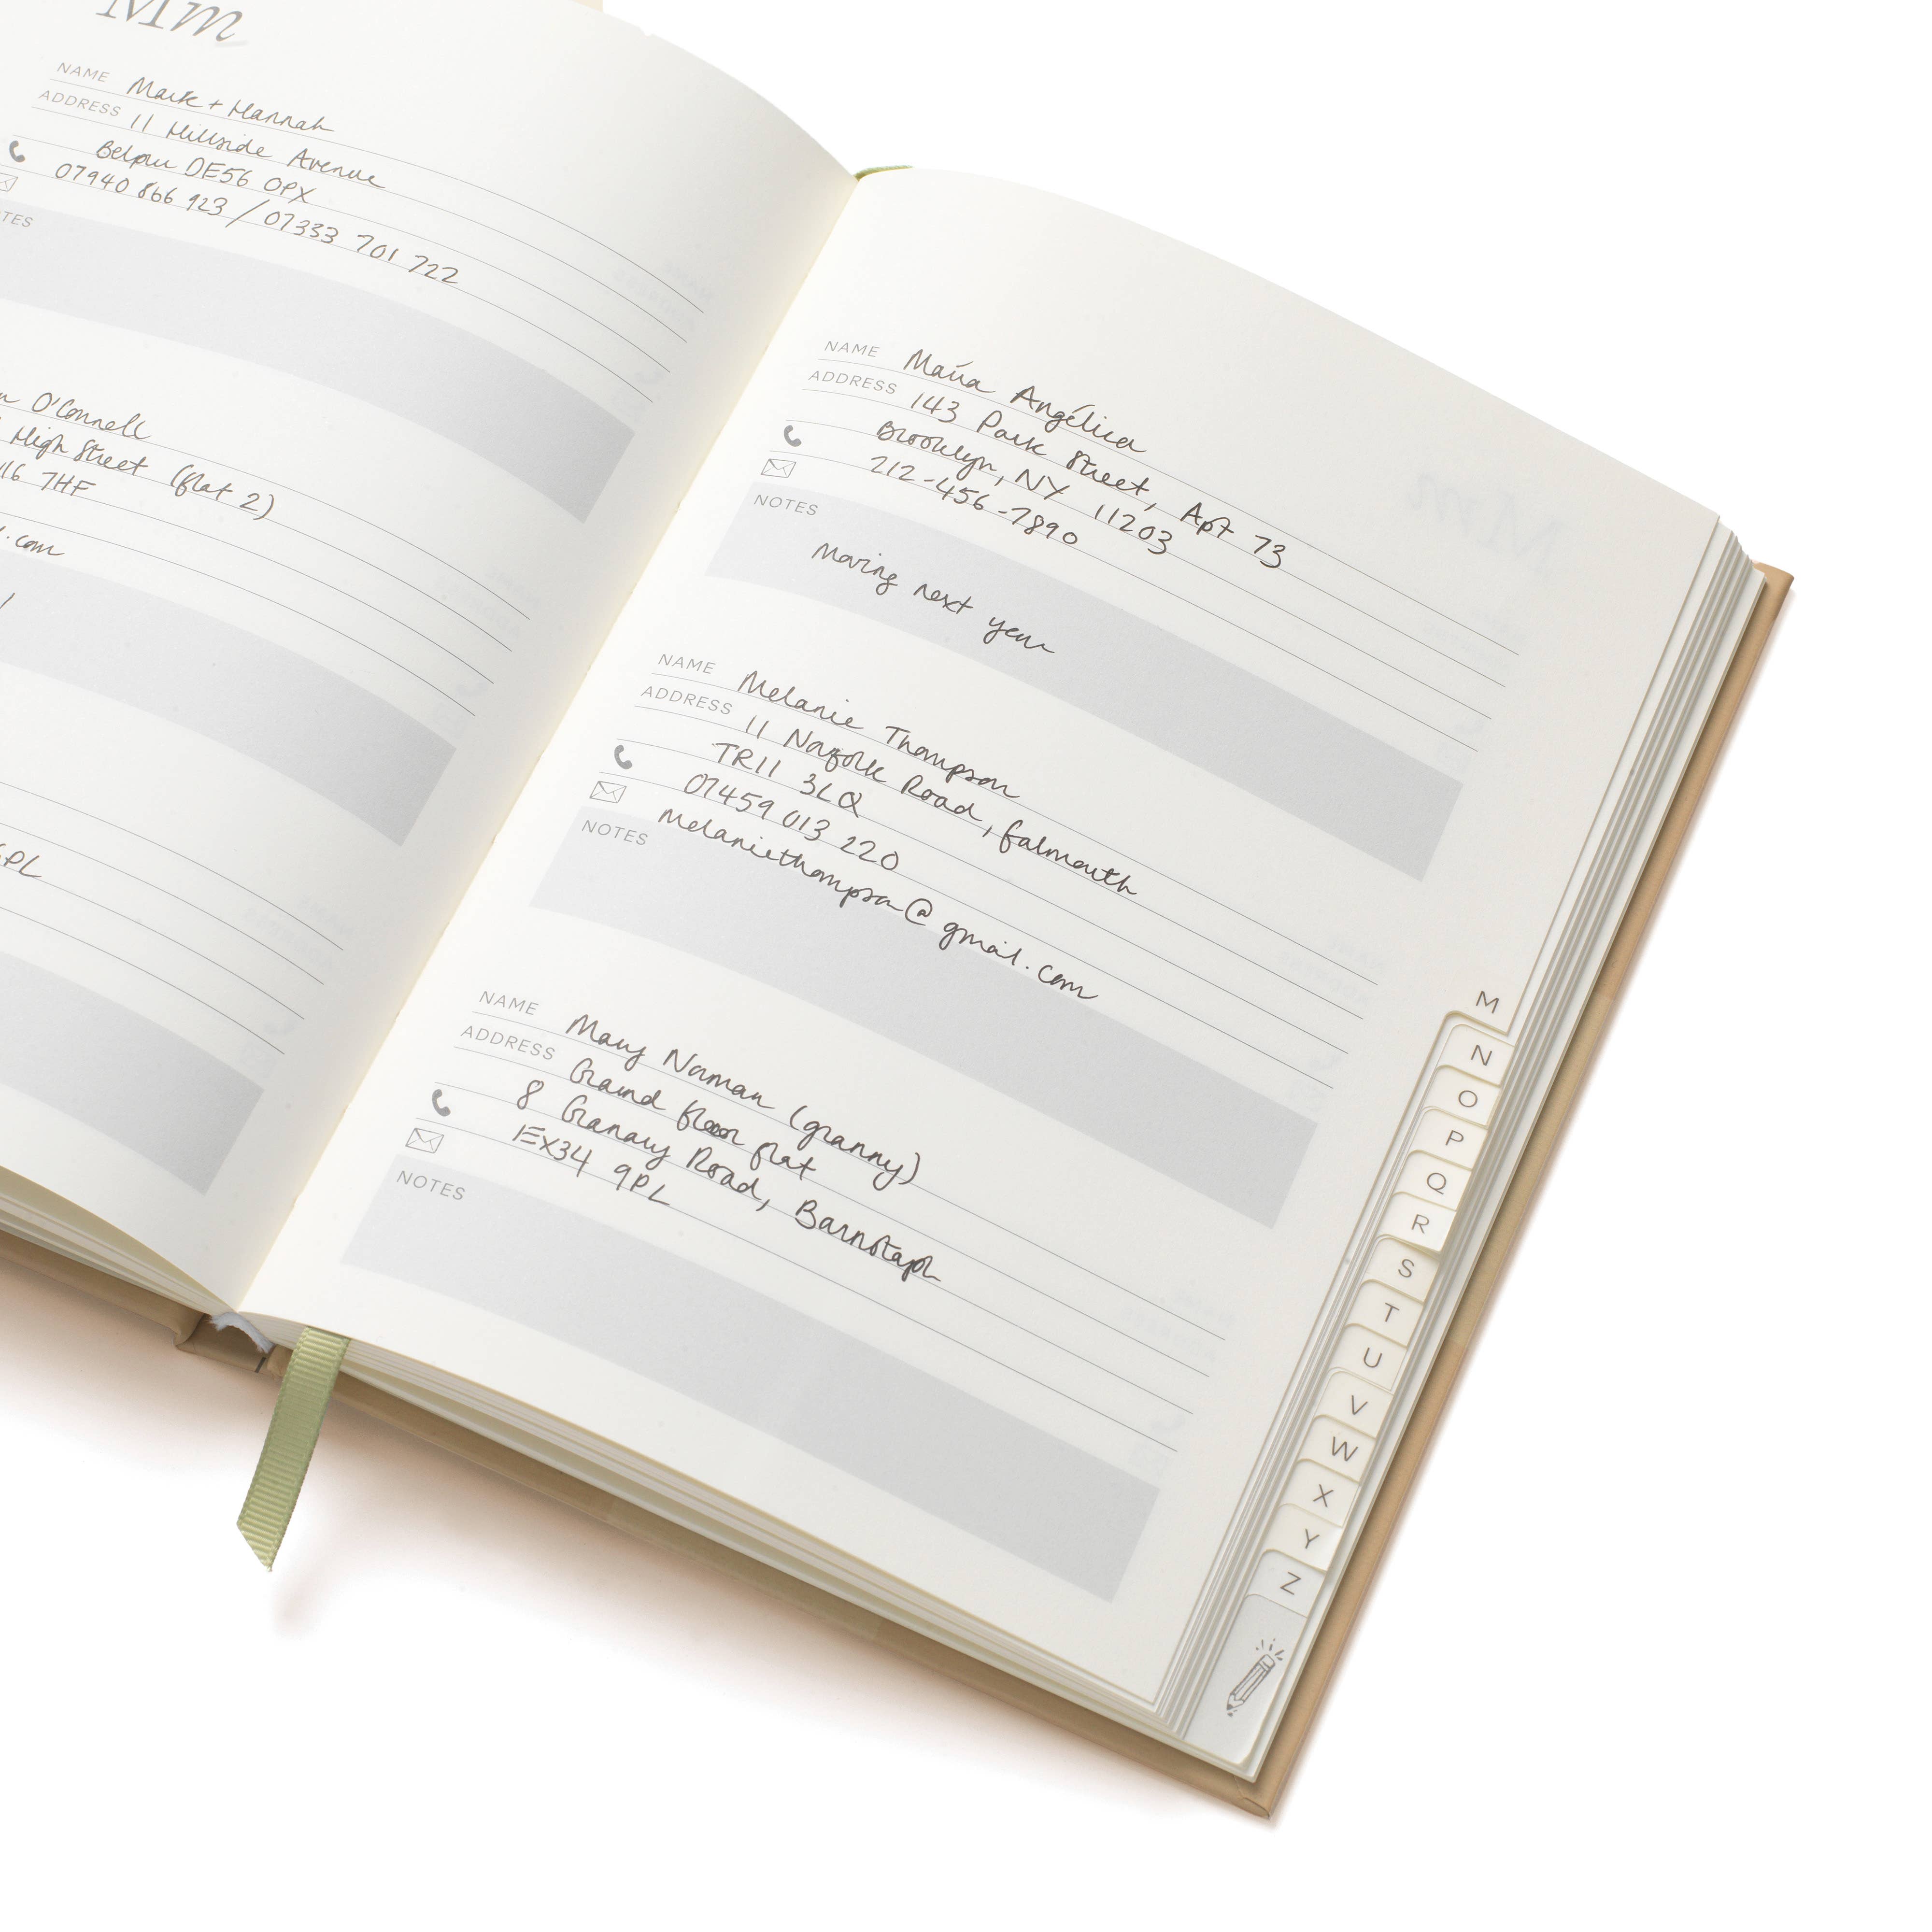 Mm
NAME Mark + Hannah
ADDRESS 11 Hillside Avenue
Belper DE56 0PX
07940 866 923 / 07333 701 722
O'Connell
High Street (flat 2)
7HF
.com
NAME María Angélica
ADDRESS 143 Park Street, Apt 73
Brooklyn, NY 11203
212-456-7890
NOTES
Moving next year
NAME Melanie Thompson
ADDRESS 11 Norfolk Road, Falmouth
TR11 3LQ
07459 013 220
Melaniethompson@gmail.com
NOTES
NAME Mary Norman (granny)
ADDRESS Ground floor flat
8 Granary Road, Barnstaple
EX34 9PL
NOTES
M
N
O
P
Q
R
S
T
U
V
W
X
Y
Z